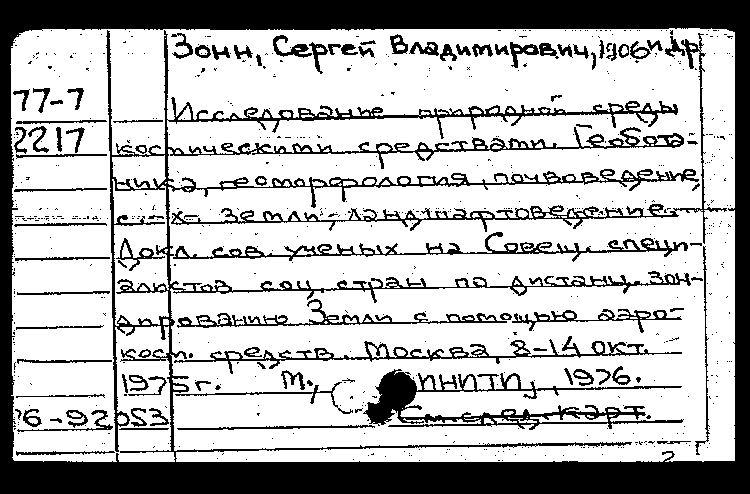 Зонн, Сергей Владимирович, 1906 и др.
77-7
Исследование природной среды
2217
космическими средствами. Геобота-
ника, геоморфология, почвоведение,
с.-х. земли, ландшафтоведение.
Докл. сов. ученых на Совещ. специ-
алистов соц. стран по дистанц. зон-
дированию Земли с помощью аэро-
косм. средств. Москва, 8-14 окт.
1975 г. М., ВИНИТИ, 1976.
6-92053
См. след. карт.